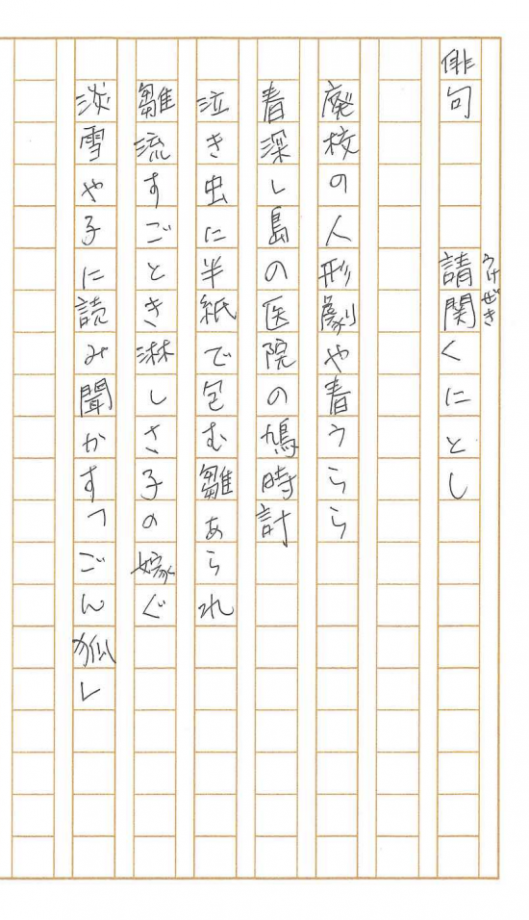 俳句　請関くにとし
うけぜき
廃校の人形劇や春うらら
春深し島の医院の鳩時計
泣き虫に半紙で包む雛あられ
雛流すごとき淋しさ子の嫁ぐ
淡雪や子に読み聞かす「ごん狐」